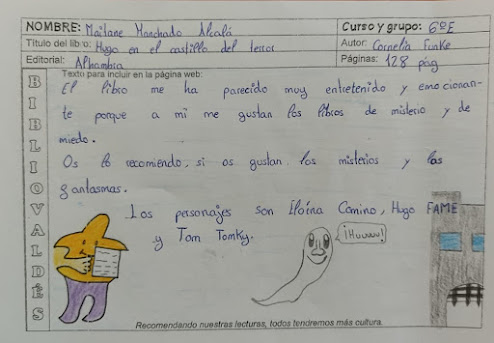 NOMBRE: Mailane Manchado Alcalá
Curso y grupo: 6ºE
Título del libro: Hugo en el castillo del terror
Autor: Cornelia Funke
Editorial: Alhambra
Páginas: 128 pág
Texto para incluir en la página web:
El libro me ha parecido muy entretenido y emocionan-
te porque a mi me gustan los libros de misterio y de
miedo.
Os lo recomiendo, si os gustan los misterios y los
fantasmas.
Los personajes son Eloína Comino, Hugo FAME
y Tom Tomky.
¡Huuuu!
BIBLIOVALDÉS
Recomendando nuestras lecturas, todos tendremos más cultura.